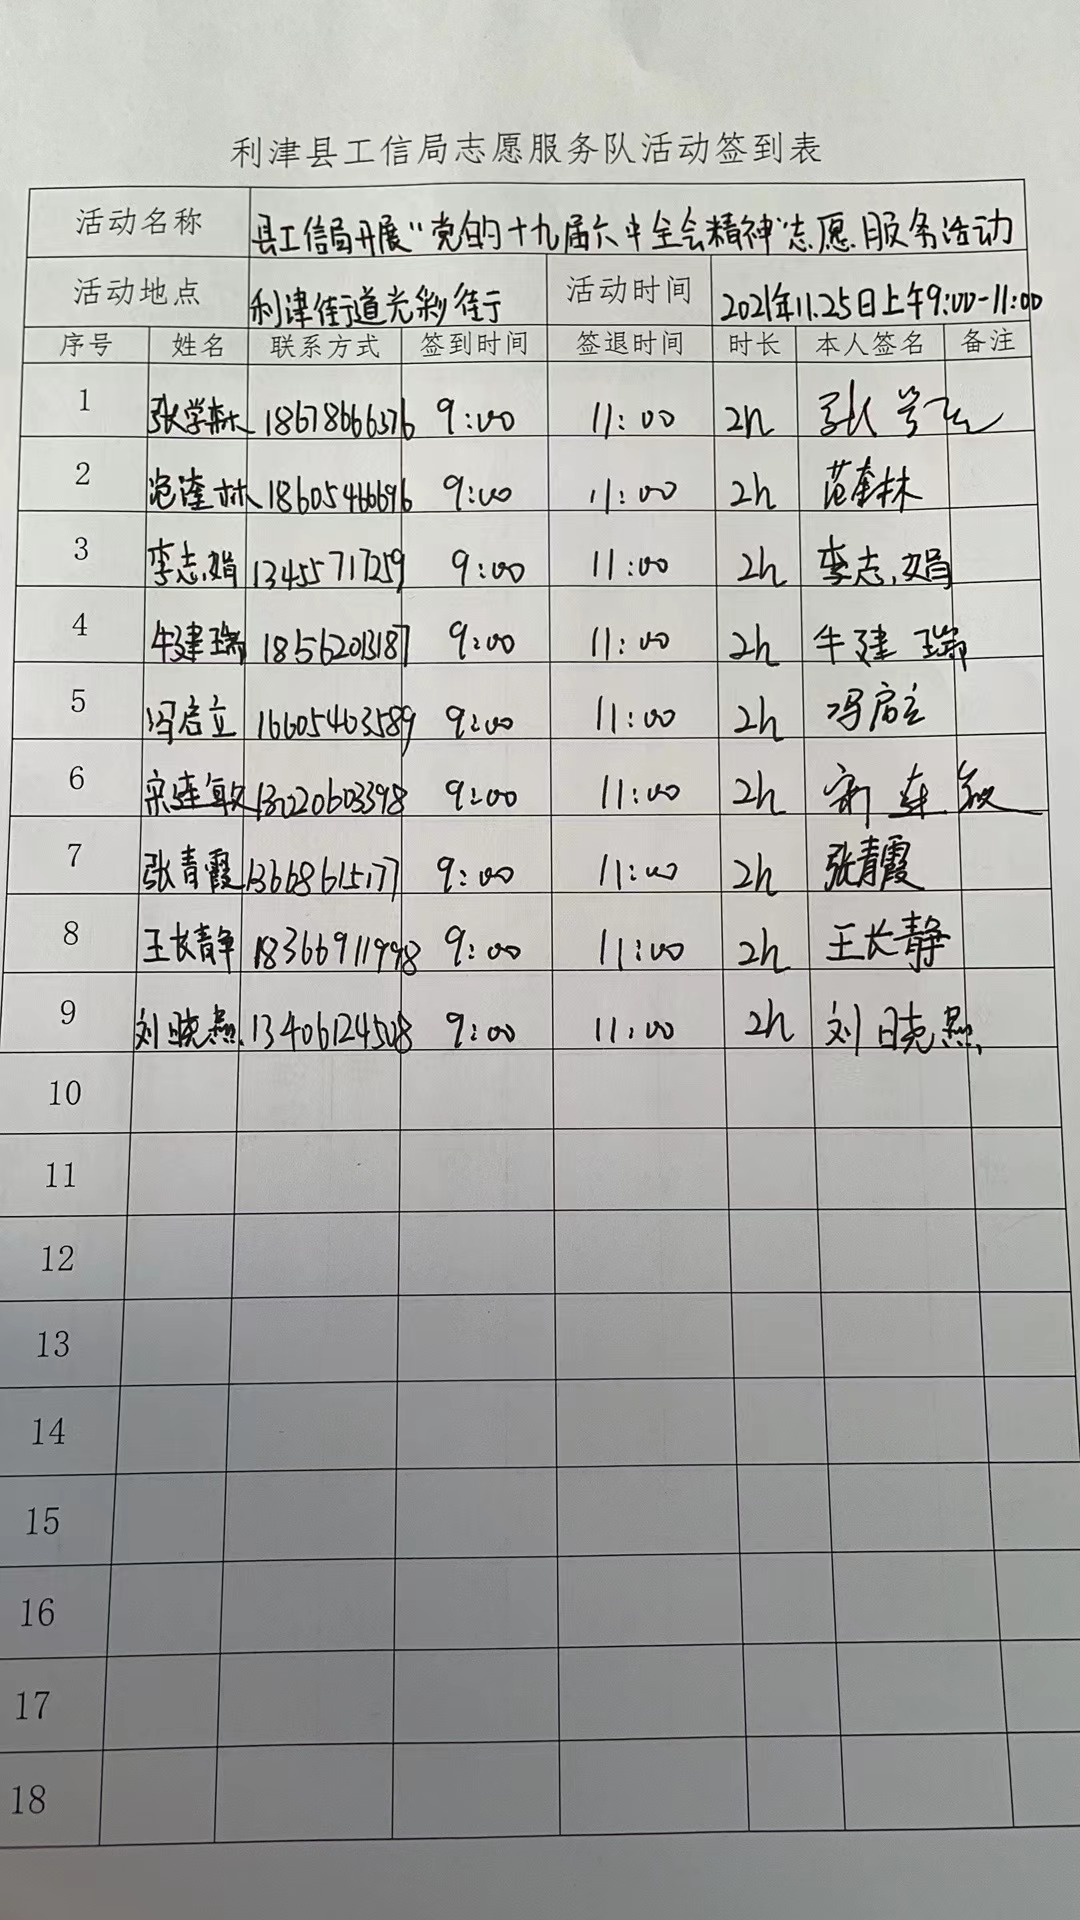 利津县工信局志愿服务队活动签到表
活动名称 县工信局开展“党的十九届六中全会精神”志愿服务活动
活动地点 利津街道光彩街 活动时间 2021年11.25日上午9:00-11:00
序号 姓名 联系方式 签到时间 签退时间 时长 本人签名 备注
1 张学森 18678666376 9:00 11:00 2h 张
2 范奎林 18605460696 9:00 11:00 2h 范奎林
3 李志娟 13455717259 9:00 11:00 2h 李志娟
4 牛建瑞 18562013187 9:00 11:00 2h 牛建瑞
5 冯启立 16605463589 9:00 11:00 2h 冯启立
6 宋连敏 13220603398 9:00 11:00 2h 宋连敏
7 张青霞 13668615177 9:00 11:00 2h 张青霞
8 王长静 18366911998 9:00 11:00 2h 王长静
9 刘晓燕 13406124508 9:00 11:00 2h 刘晓燕
10
11
12
13
14
15
16
17
18